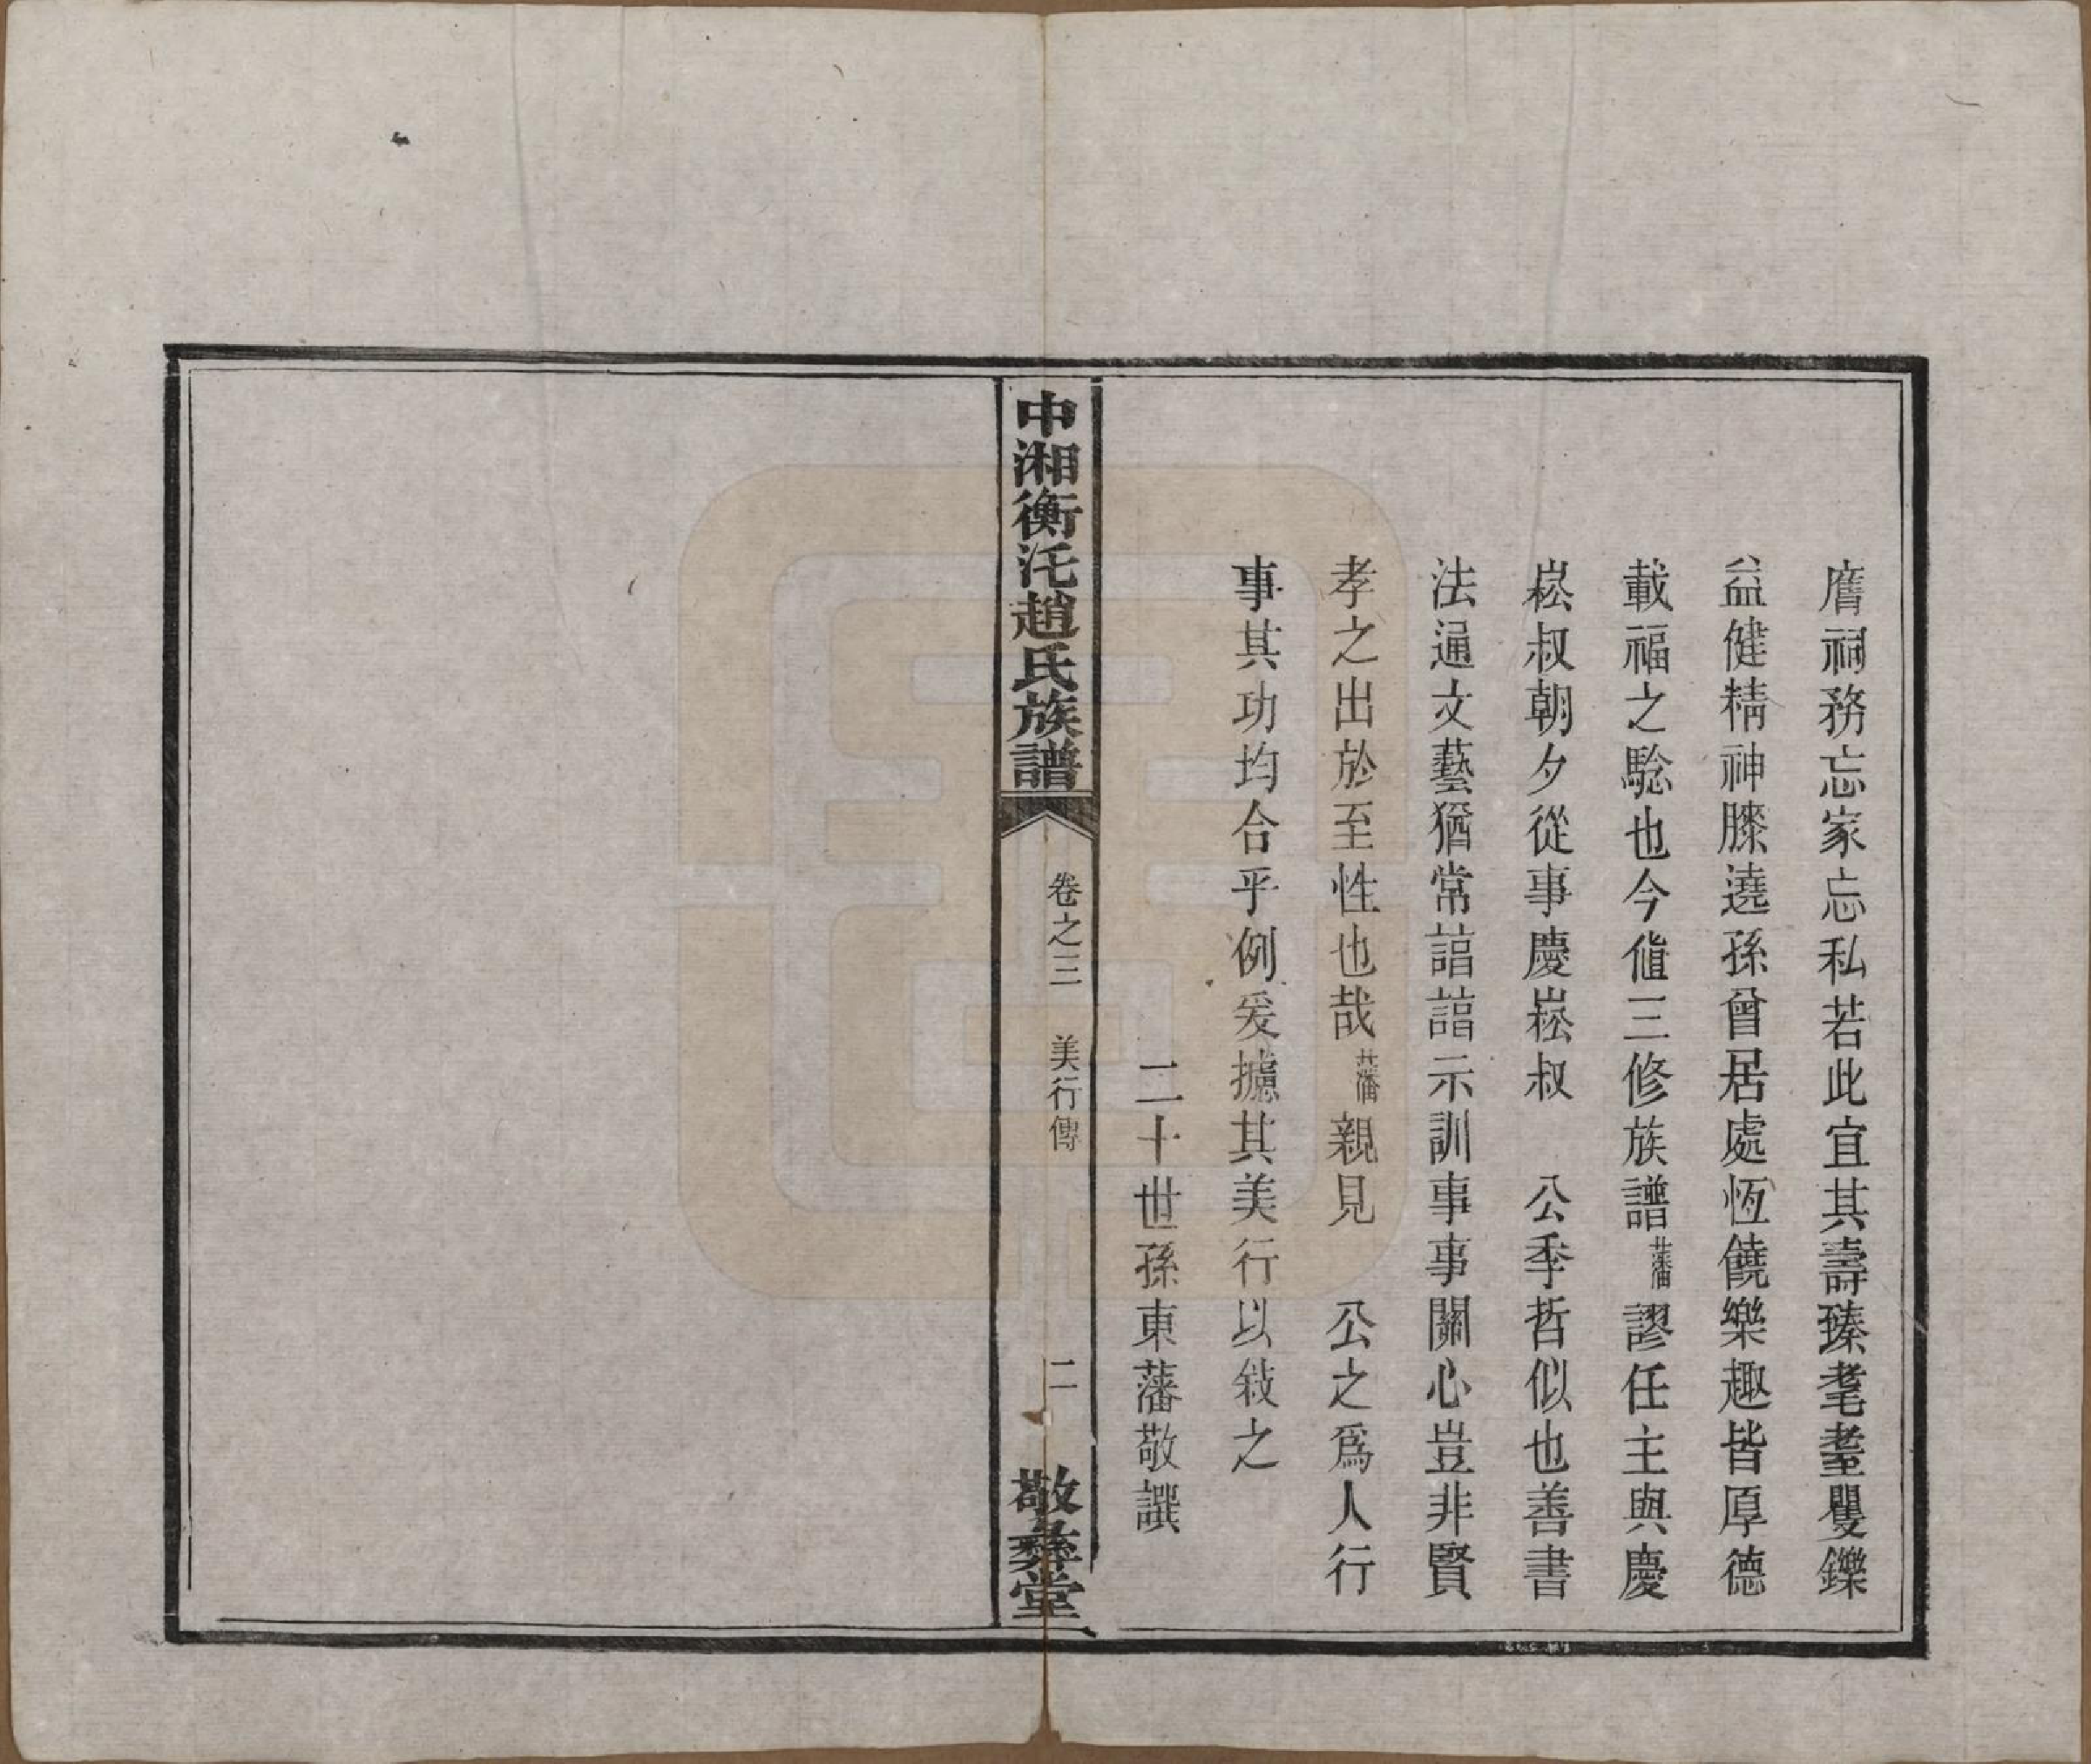 膺祠務忘家忘私若此宜其壽臻耄耋矍鑠
益健精神膝遶孫曾居處恆饒樂趣皆厚德
載福之騐也今值三修族譜藩謬任主與慶
崧叔朝夕從事慶崧叔 公季哲似也善書
法通文藝猶常諳諳示訓事事關心豈非賢
孝之出於至性也哉藩親見 公之爲人行
事其功均合乎例爰攄其美行以敍之
二十世孫東藩敬譔
中湘衡汑趙氏族譜
卷之三 美行傳
二
敬彝堂